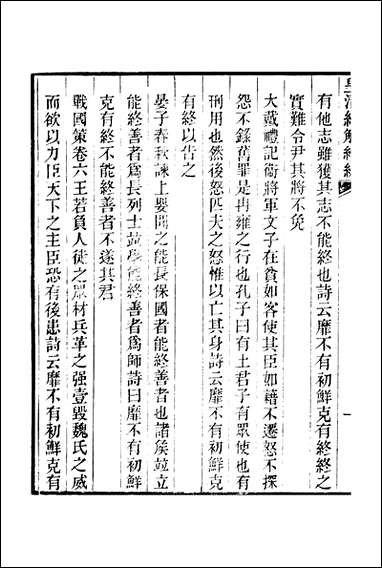 皇清經解續編
有他志雖獲其志不能終也詩云靡不有初鮮克有終終之
實難令尹其將不免
大戴禮記衞將軍文子在貧如客使其臣如藉不遷怒不探
怨不錄舊罪是冉雍之行也孔子曰有土君子有眾使也有
刑用也然後怒匹夫之怒惟以亡其身詩云靡不有初鮮克
有終以告之
晏子春秋諫上嬰聞之能長保國者能終善者也諸矦竝立
能終善者爲長列士竝學能終善者爲師詩曰靡不有初鮮
克有終不能終善者不遂其君
戰國策卷六王若負人徒之眾材兵革之强壹毀魏氏之威
而欲以力臣天下之主臣恐有後患詩云靡不有初鮮克有